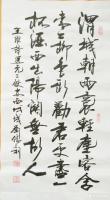 渭城朝雨浥輕塵客舍
青青柳色新勸君更盡一
杯酒西出陽關無故人
王維詩送元二使安西